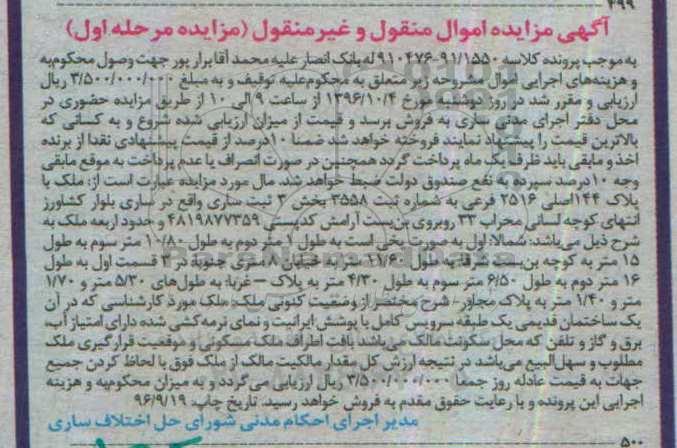 ۴۹۹
آگهی مزایده اموال منقول و غیرمنقول (مزایده مرحله اول)
به موجب پرونده کلاسه ۹۱/۱۵۵۰-۹۱۰۴۷۶ له بانک انصار علیه محمد آقابرار پور جهت وصول محکوم‌به
و هزینه‌های اجرایی اموال مشروحه زیر متعلق به محکوم‌علیه توقیف و به مبلغ ۳/۵۰۰/۰۰۰/۰۰۰ ریال
ارزیابی و مقرر شد در روز دوشنبه مورخ ۱۳۹۶/۱۰/۴ از ساعت ۹ الی ۱۰ از طریق مزایده حضوری در
محل دفتر اجرای مدنی ساری به فروش برسد و قیمت از میزان ارزیابی شده شروع و به کسانی که
بالاترین قیمت را پیشنهاد نمایند فروخته خواهد شد ضمنا ۱۰درصد از قیمت پیشنهادی نقدا از برنده
اخذ و مابقی باید ظرف یک ماه پرداخت گردد همچنین در صورت انصراف یا عدم پرداخت به موقع مابقی
وجه ۱۰درصد سپرده به نفع صندوق دولت ضبط خواهد شد. مال مورد مزایده عبارت است از: ملک با
پلاک ۱۴۴اصلی ۲۵۱۶ فرعی به شماره ثبت ۳۵۵۸ بخش ۳ ثبت ساری واقع در ساری بلوار کشاورز
انتهای کوچه لسانی محراب ۳۳ روبروی بن‌بست آرامش کدپستی ۴۸۱۹۸۷۷۳۵۹ و حدود اربعه ملک به
شرح ذیل می‌باشد: شمالا: اول به صورت پخی است به طول ۱ متر دوم به طول ۱۰/۸۰ متر سوم به طول
۱۵ متر به کوچه بن‌بست شرقا: به طول ۱۱/۶۰ متر به خیابان ۸ متری جنوبا: در ۳ قسمت اول به طول
۱۶ متر دوم به طول ۶/۵۰ متر سوم به طول ۴/۳۰ متر به پلاک – غربا: به طول‌های ۵/۳۰ متر و ۱/۷۰
متر و ۱/۴۰ متر به پلاک مجاور - شرح مختصر از وضعیت کنونی ملک: ملک مورد کارشناسی که در آن
یک ساختمان قدیمی یک طبقه سرویس کامل با پوشش ایرانیت و نمای نرمه کشی شده دارای امتیاز آب،
برق و گاز و تلفن که محل سکونت مالک می‌باشد بافت اطراف ملک مسکونی و موقعیت قرارگیری ملک
مطلوب و سهل‌البیع می‌باشد در نتیجه ارزش کل مقدار مالکیت مالک از ملک فوق با لحاظ کردن جمیع
جهات به قیمت عادله روز جمعا ۳/۵۰۰/۰۰۰/۰۰۰ ریال ارزیابی می‌گردد و به میزان محکوم‌به و هزینه
اجرایی این پرونده و با رعایت حقوق مقدم به فروش خواهد رسید. تاریخ چاپ: ۹۶/۹/۱۹
مدیر اجرای احکام مدنی شورای حل اختلاف ساری
۵۰۰